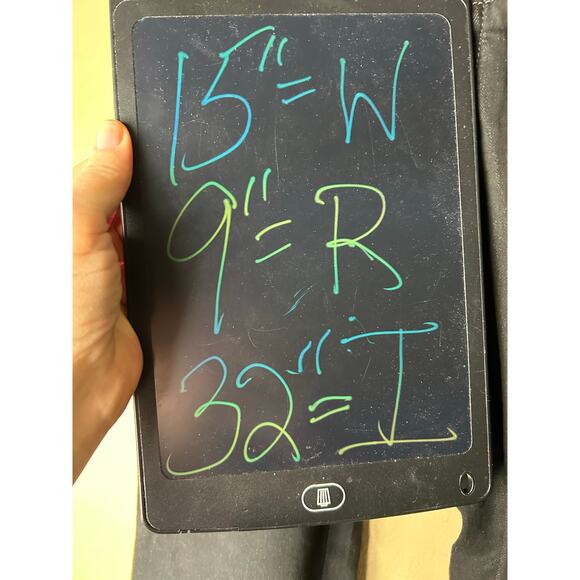 15"= W
9"= R
32"= I